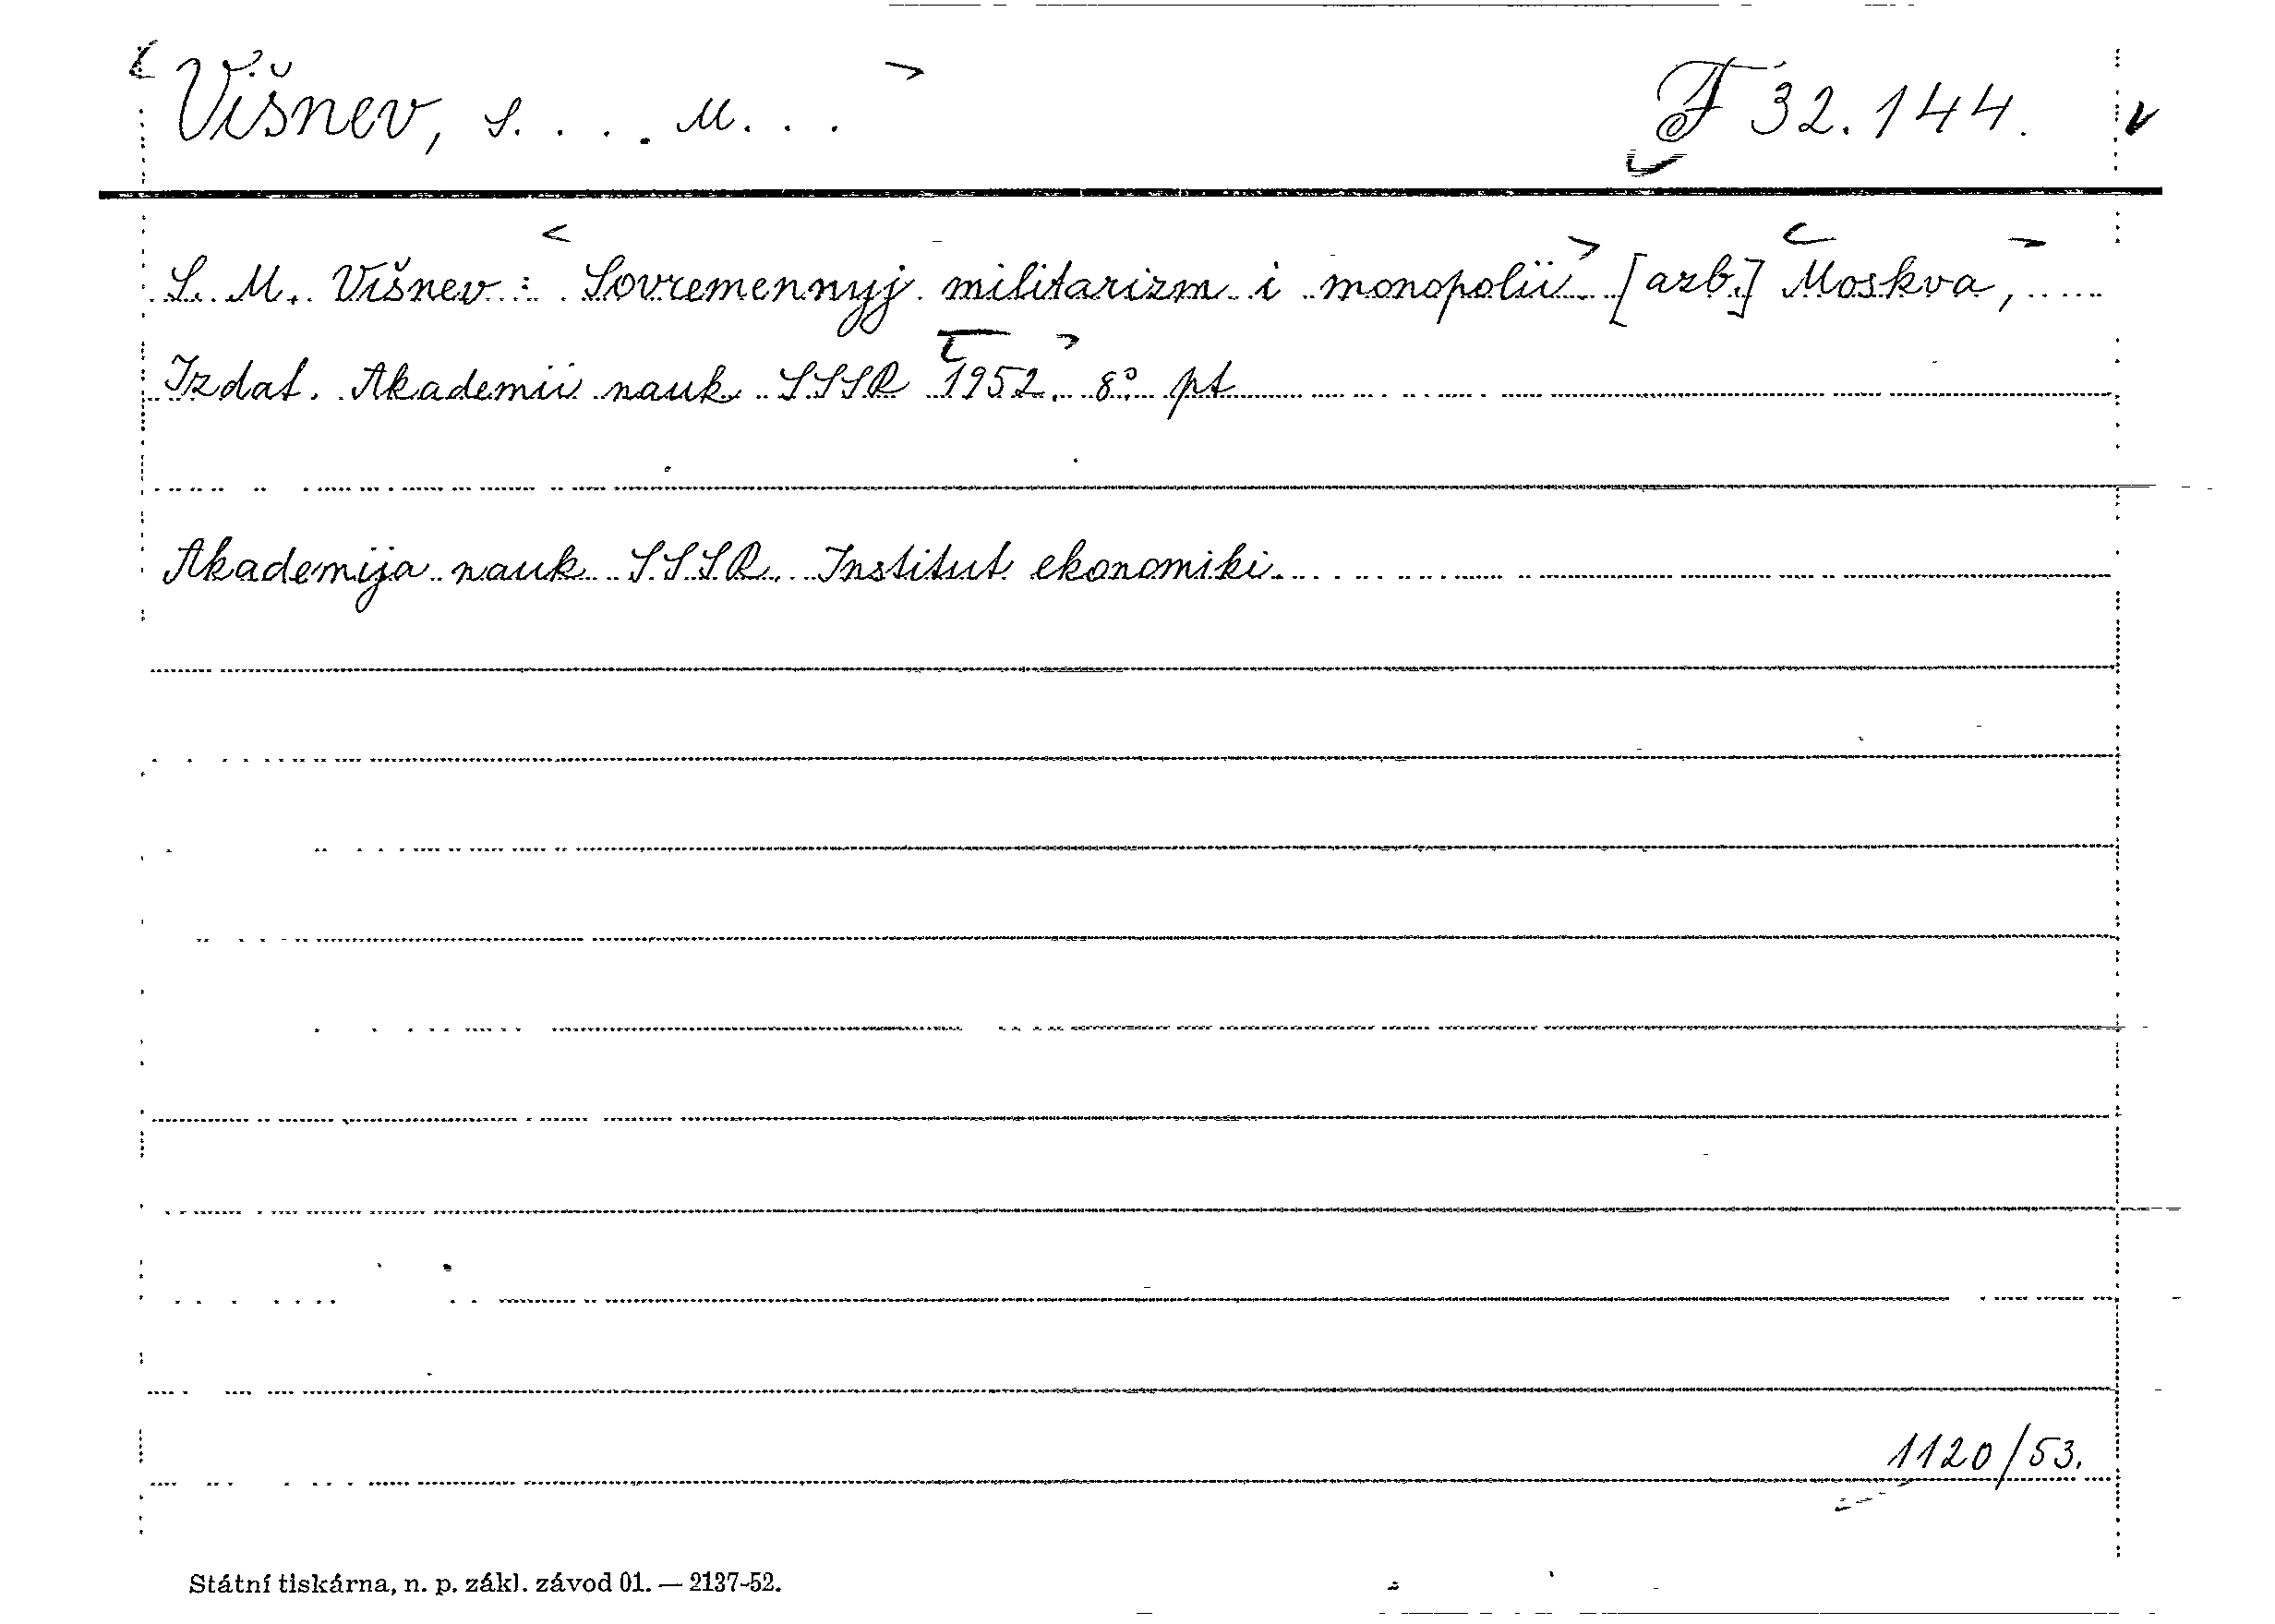 Višnev, S. . . . M. . . F 32.144.
S. M. Višnev: Sovremennyj militarizm i monopolii. [azb.] Moskva,
Izdat. Akademii nauk SSSR 1952. 8° pt
Akademija nauk SSSR. Institut ekonomiki.
1120/53.
Státní tiskárna, n. p. zákl. závod 01. — 2137-52.